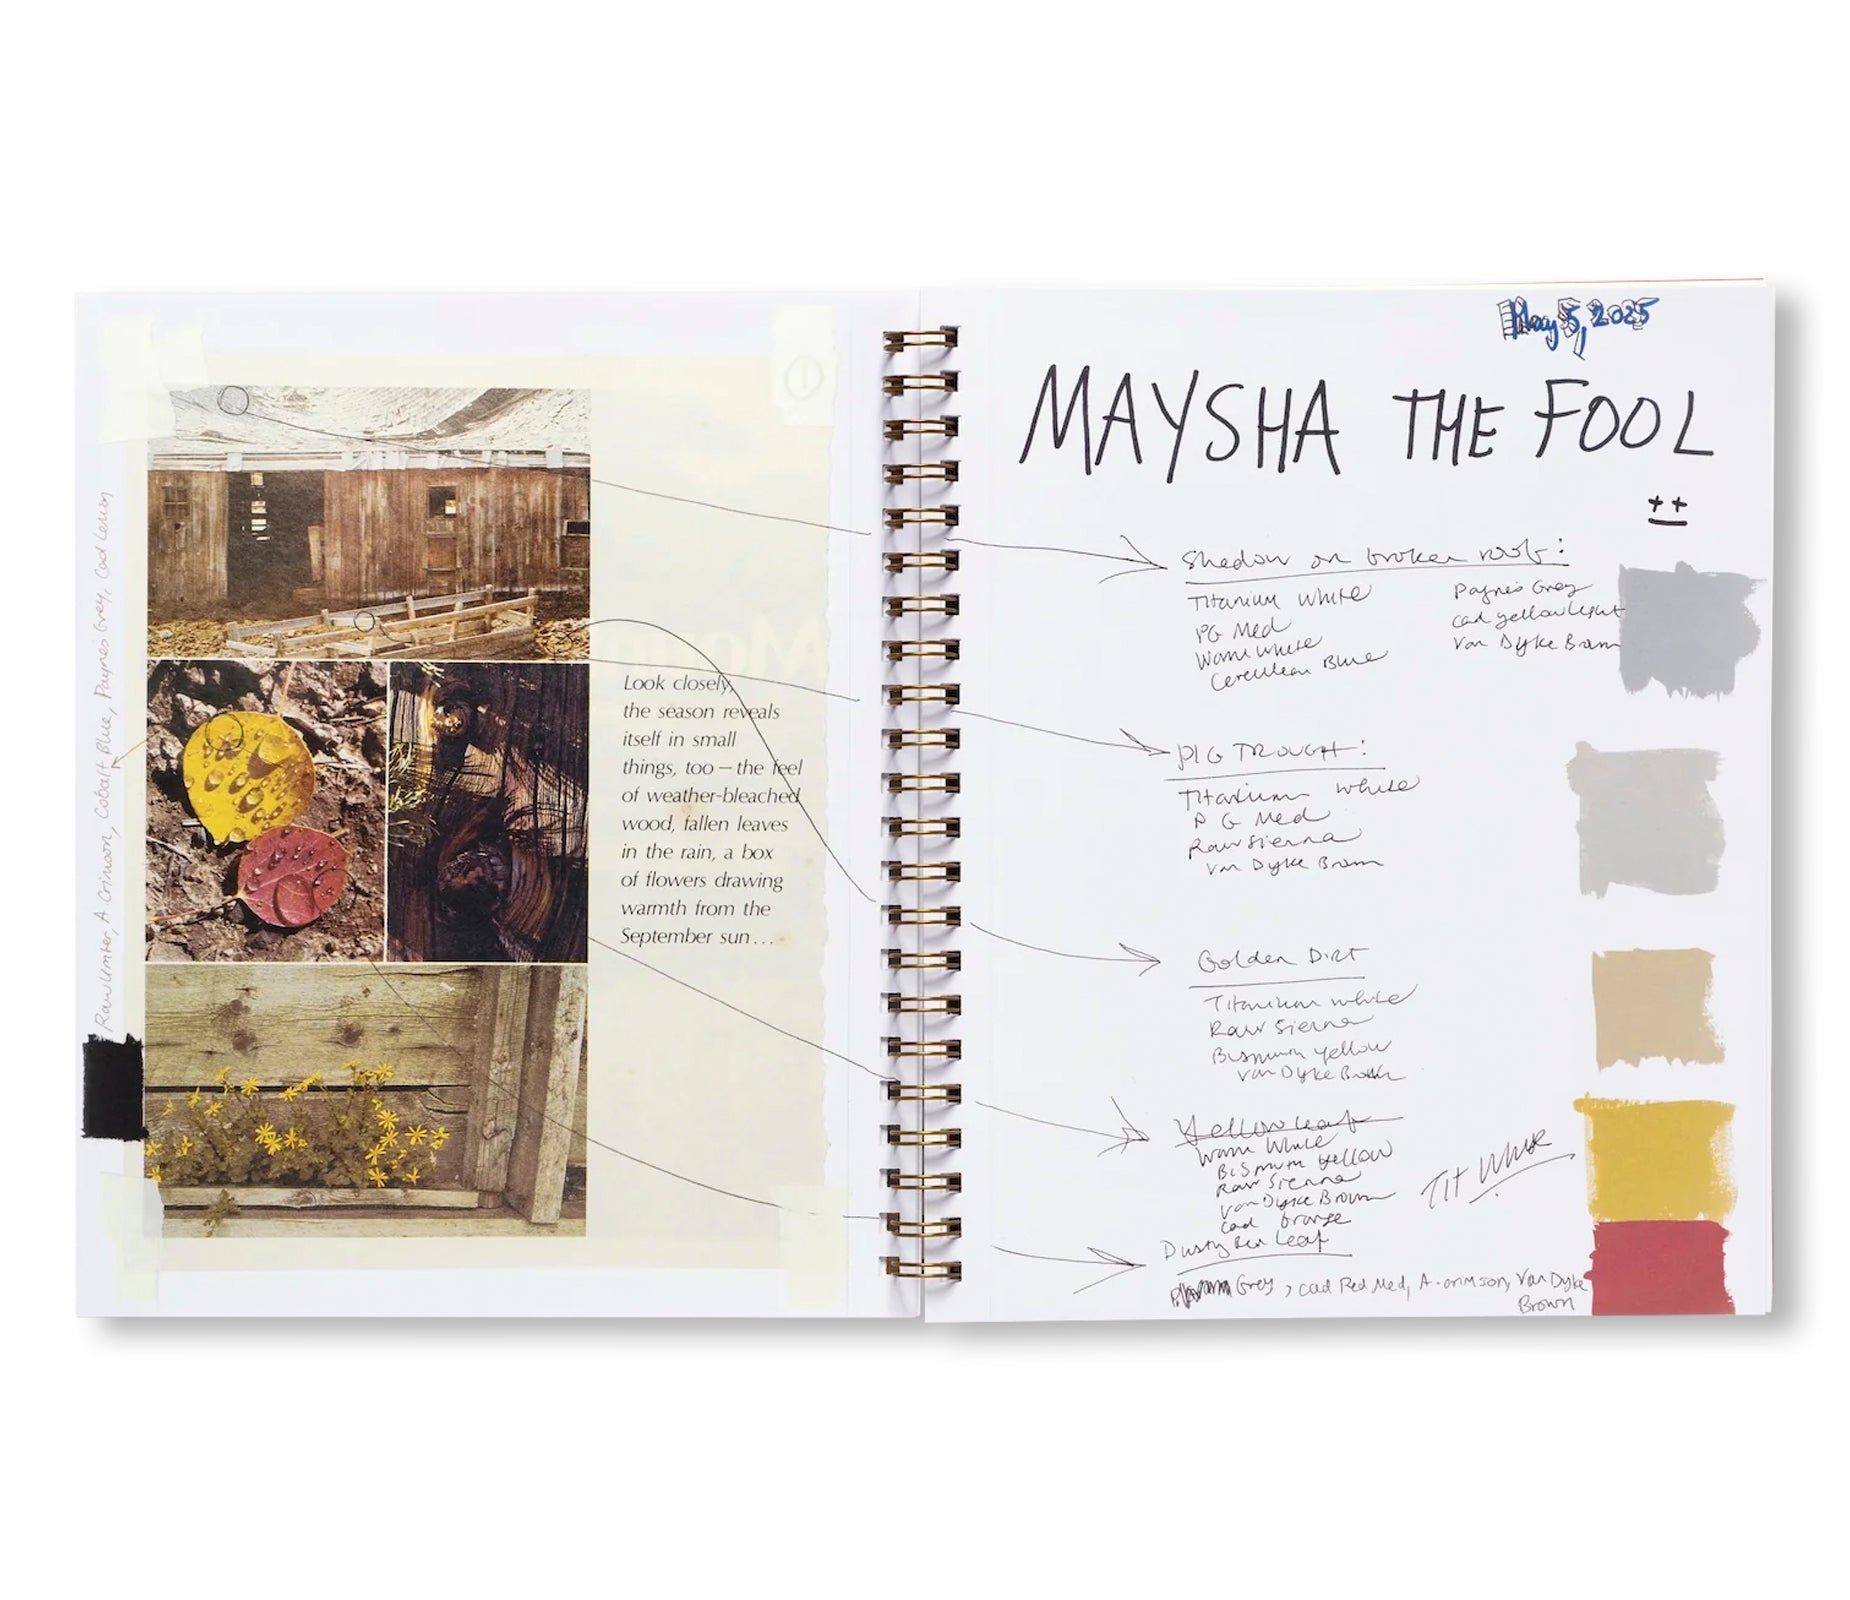 Raw Umber, A Crimson, Cobalt Blue, Paynes Grey, Cad Lemon
1
Look closely,
the season reveals
itself in small
things, too — the feel
of weather-bleached
wood, fallen leaves
in the rain, a box
of flowers drawing
warmth from the
September sun...
May 5, 2025
MAYSHA THE FOOL
Shadow on broken roof:
Titanium White
PG Med
Warm White
Cerulean Blue
Paynes Grey
cad yellow light
Van Dyke Brown
PIG TROUGH:
Titanium White
P G Med
Raw Sienna
Van Dyke Brown
Golden Dirt
Titanium White
Raw Sienna
Bismuth Yellow
Van Dyke Brown
Yellow Leaf
Warm White
Bismuth Yellow
Raw Sienna
Van Dyke Brown
Cad Orange
TIT WHITE
Dusty Red Leaf
Grey, Cad Red Med, A. crimson, Van Dyke
Brown